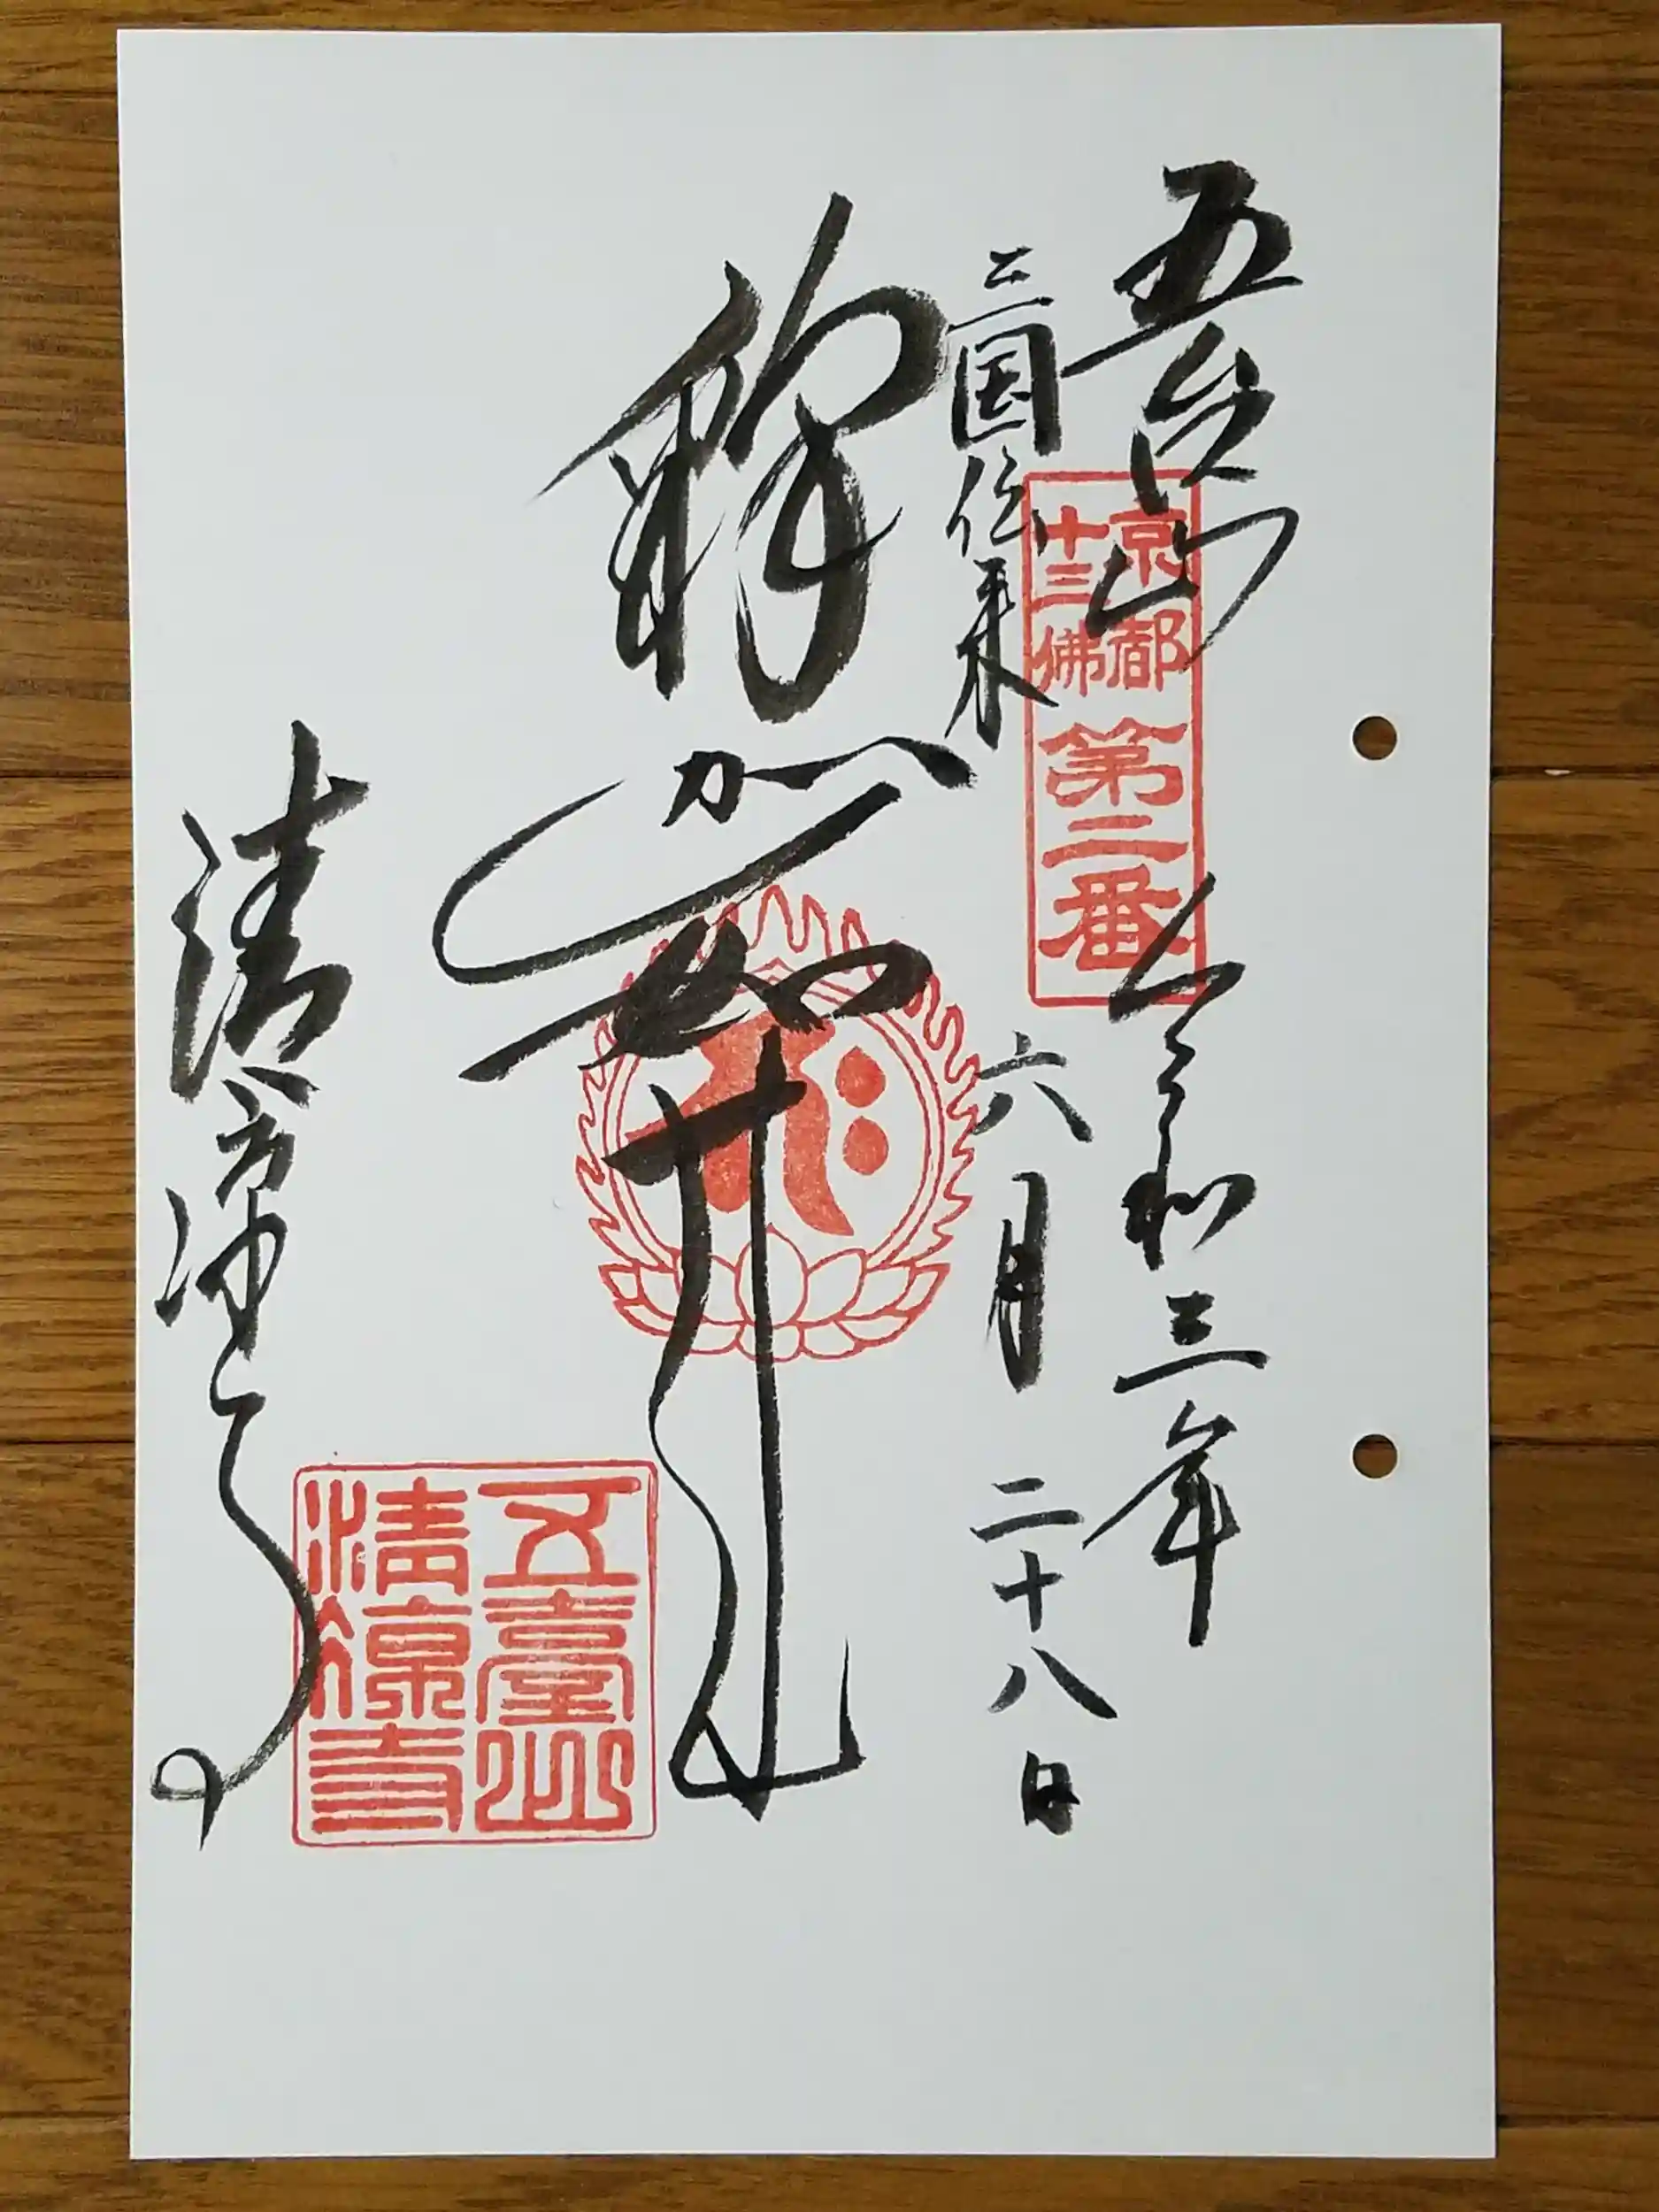 五台山
令和三年
京都
十三佛
第二番
三国伝来
六月二十八日
釋迦如来
清凉寺
五臺山
清凉寺